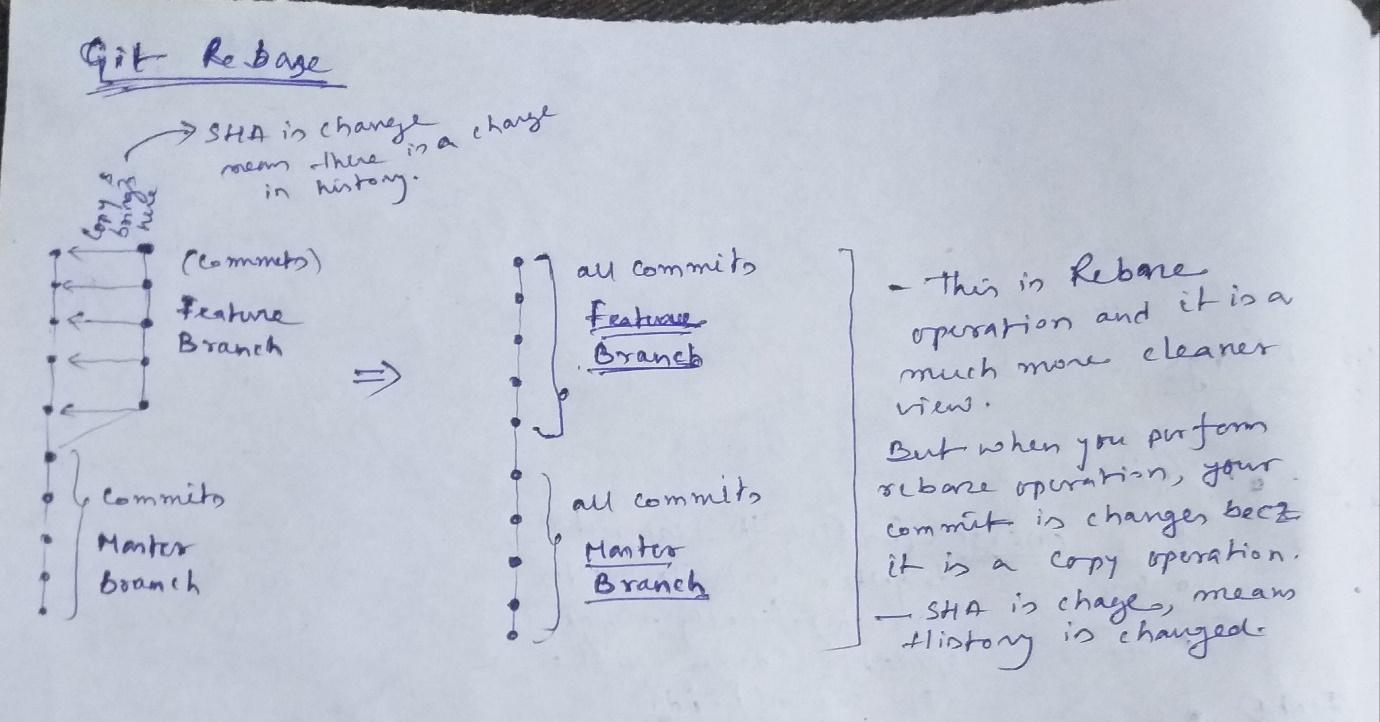 Git Rebase
SHA is change
mean there is a change
in history.
Copy &
brings
here
(Commets)
Feature
Branch
Commits
Master
Branch
⇒
all commits
Feature
Branch
all commits
Master
Branch
- This is Rebase
operation and it is a
much more cleaner
view.
But when you perform
rebase operation, your
commit is changes becz
it is a copy operation.
- SHA is chages, means
History is changed.